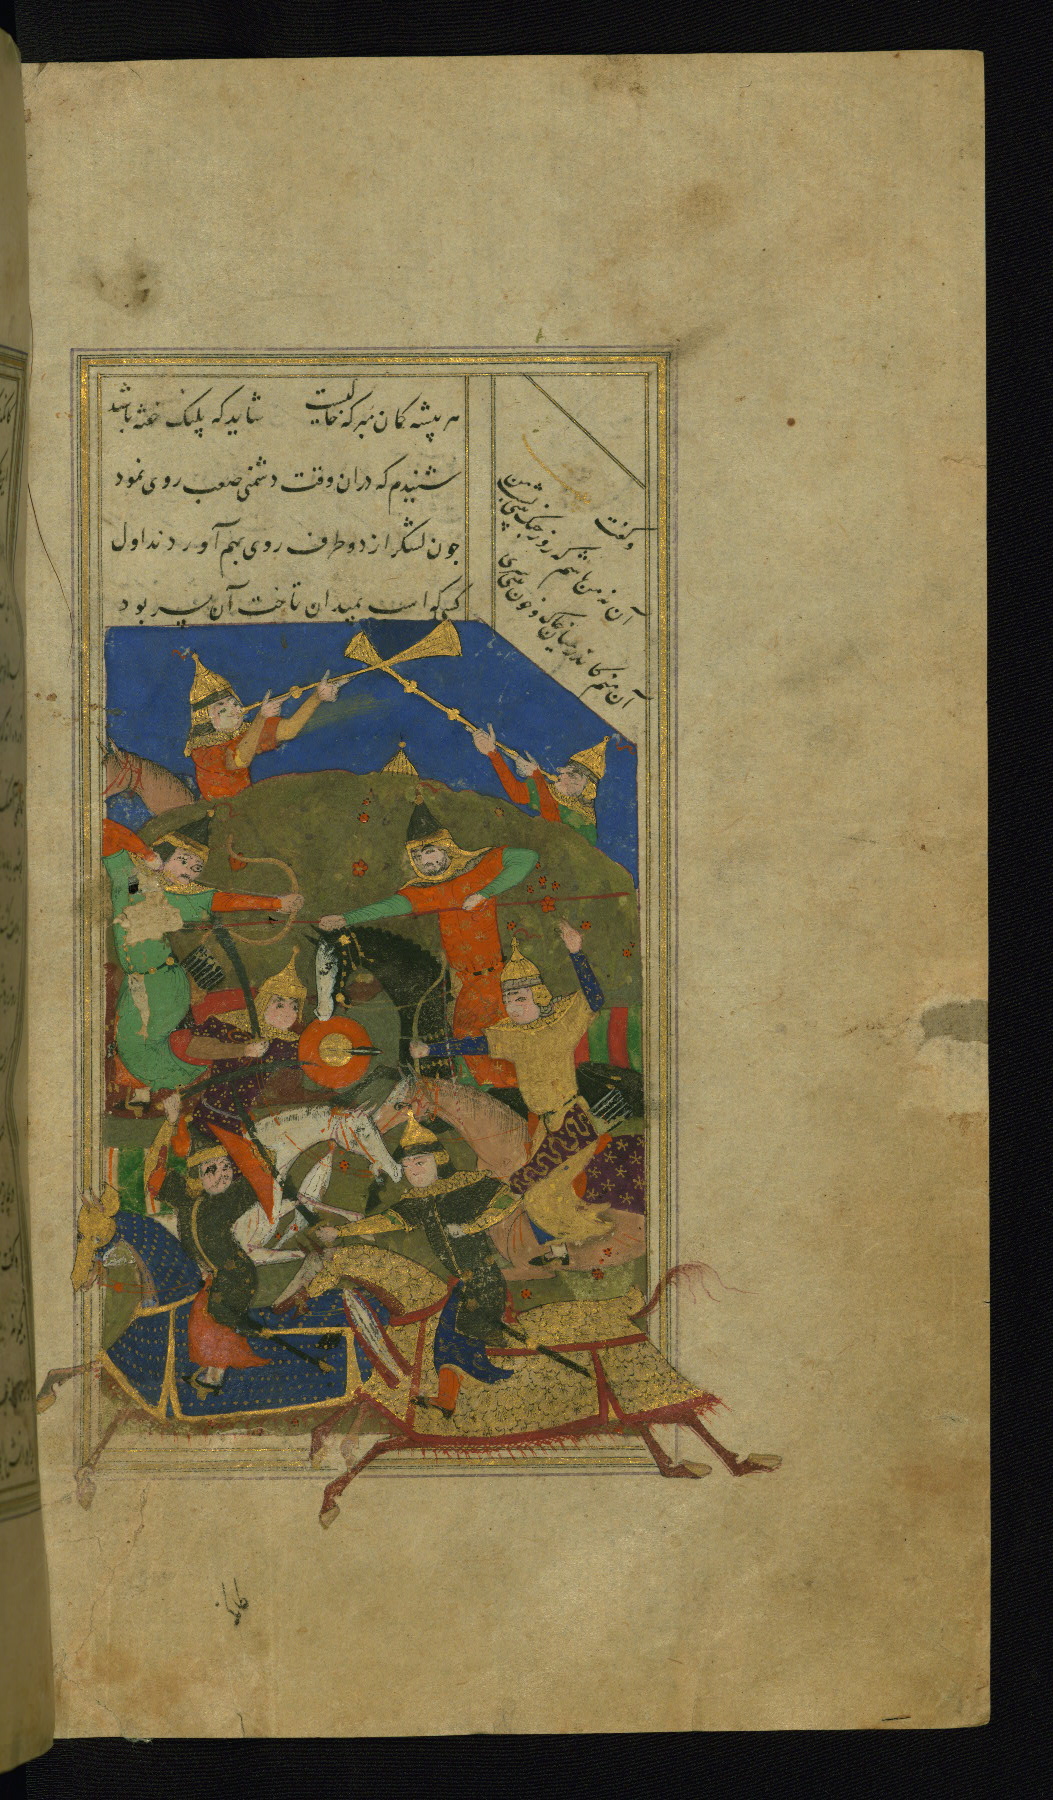 هر پیشه کمان مبر که خالیست شاید که پلنک خفته باشد
شنیدم که دران وقت دشمنی صعب روی نمود
جون لشکر از دو طرف روی بهم آوردند اول
کسی که اسب بمیدان تاخت آن پسر بود
وکفت
آن نه من باشم که روز جنک بینی پشت من
آن منم کاندر میان خاک و خون بینی سری